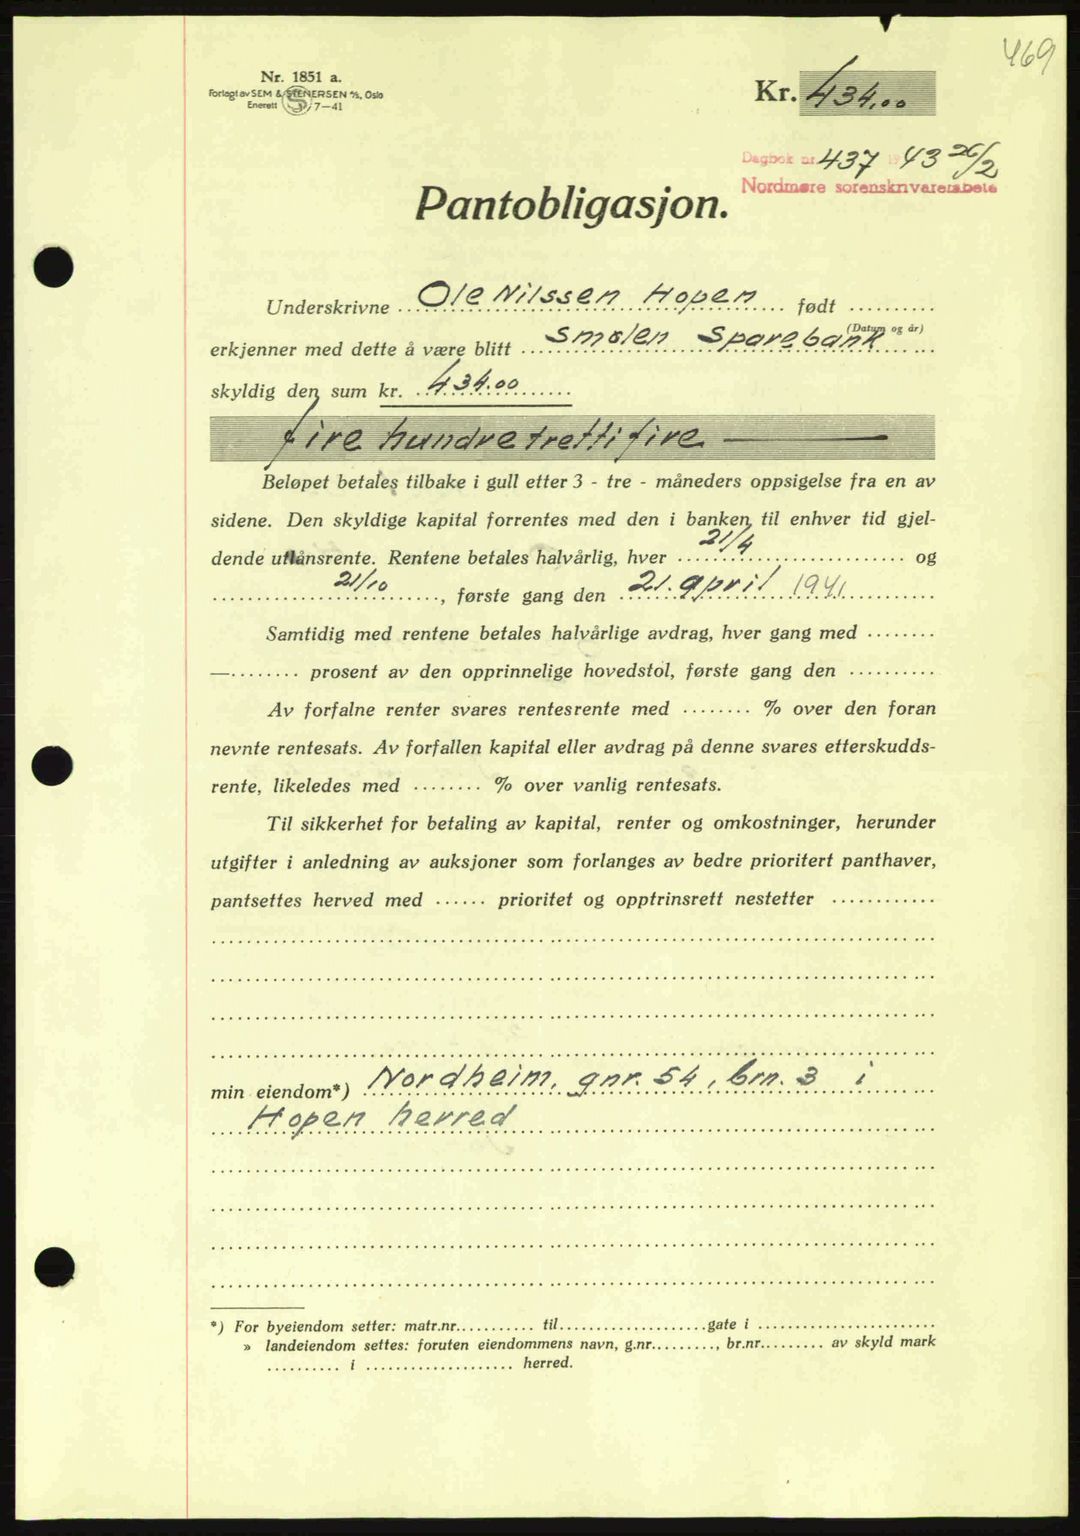 469
Nr. 1851 a.
Forlagt av SEM & STENERSEN A/S, Oslo
Enerett 7—41
Kr. 434.00
Dagbok nr. 437 1943 26/2
Nordmøre sorenskriverembete
Pantobligasjon.
Underskrivne Ole Nilssen Hopen født
(Datum og år)
erkjenner med dette å være blitt Smølen Sparebank
skyldig den sum kr. 434.00
fire hundre trettifire —
Beløpet betales tilbake i gull etter 3 - tre - måneders oppsigelse fra en av
sidene. Den skyldige kapital forrentes med den i banken til enhver tid gjel-
dende utlånsrente. Rentene betales halvårlig, hver 21/4 og
21/10, første gang den 21. april 1941
Samtidig med rentene betales halvårlige avdrag, hver gang med
— prosent av den opprinnelige hovedstol, første gang den
Av forfalne renter svares rentesrente med % over den foran
nevnte rentesats. Av forfallen kapital eller avdrag på denne svares etterskudds-
rente, likeledes med % over vanlig rentesats.
Til sikkerhet for betaling av kapital, renter og omkostninger, herunder
utgifter i anledning av auksjoner som forlanges av bedre prioritert panthaver,
pantsettes herved med prioritet og opptrinsrett nestetter
min eiendom*) Nordheim, gnr. 54, brn. 3 i
Hopen herred
*) For byeiendom setter: matr.nr. til gate i
» landeiendom settes: foruten eiendommens navn, g.nr., br.nr. av skyld mark
i herred.